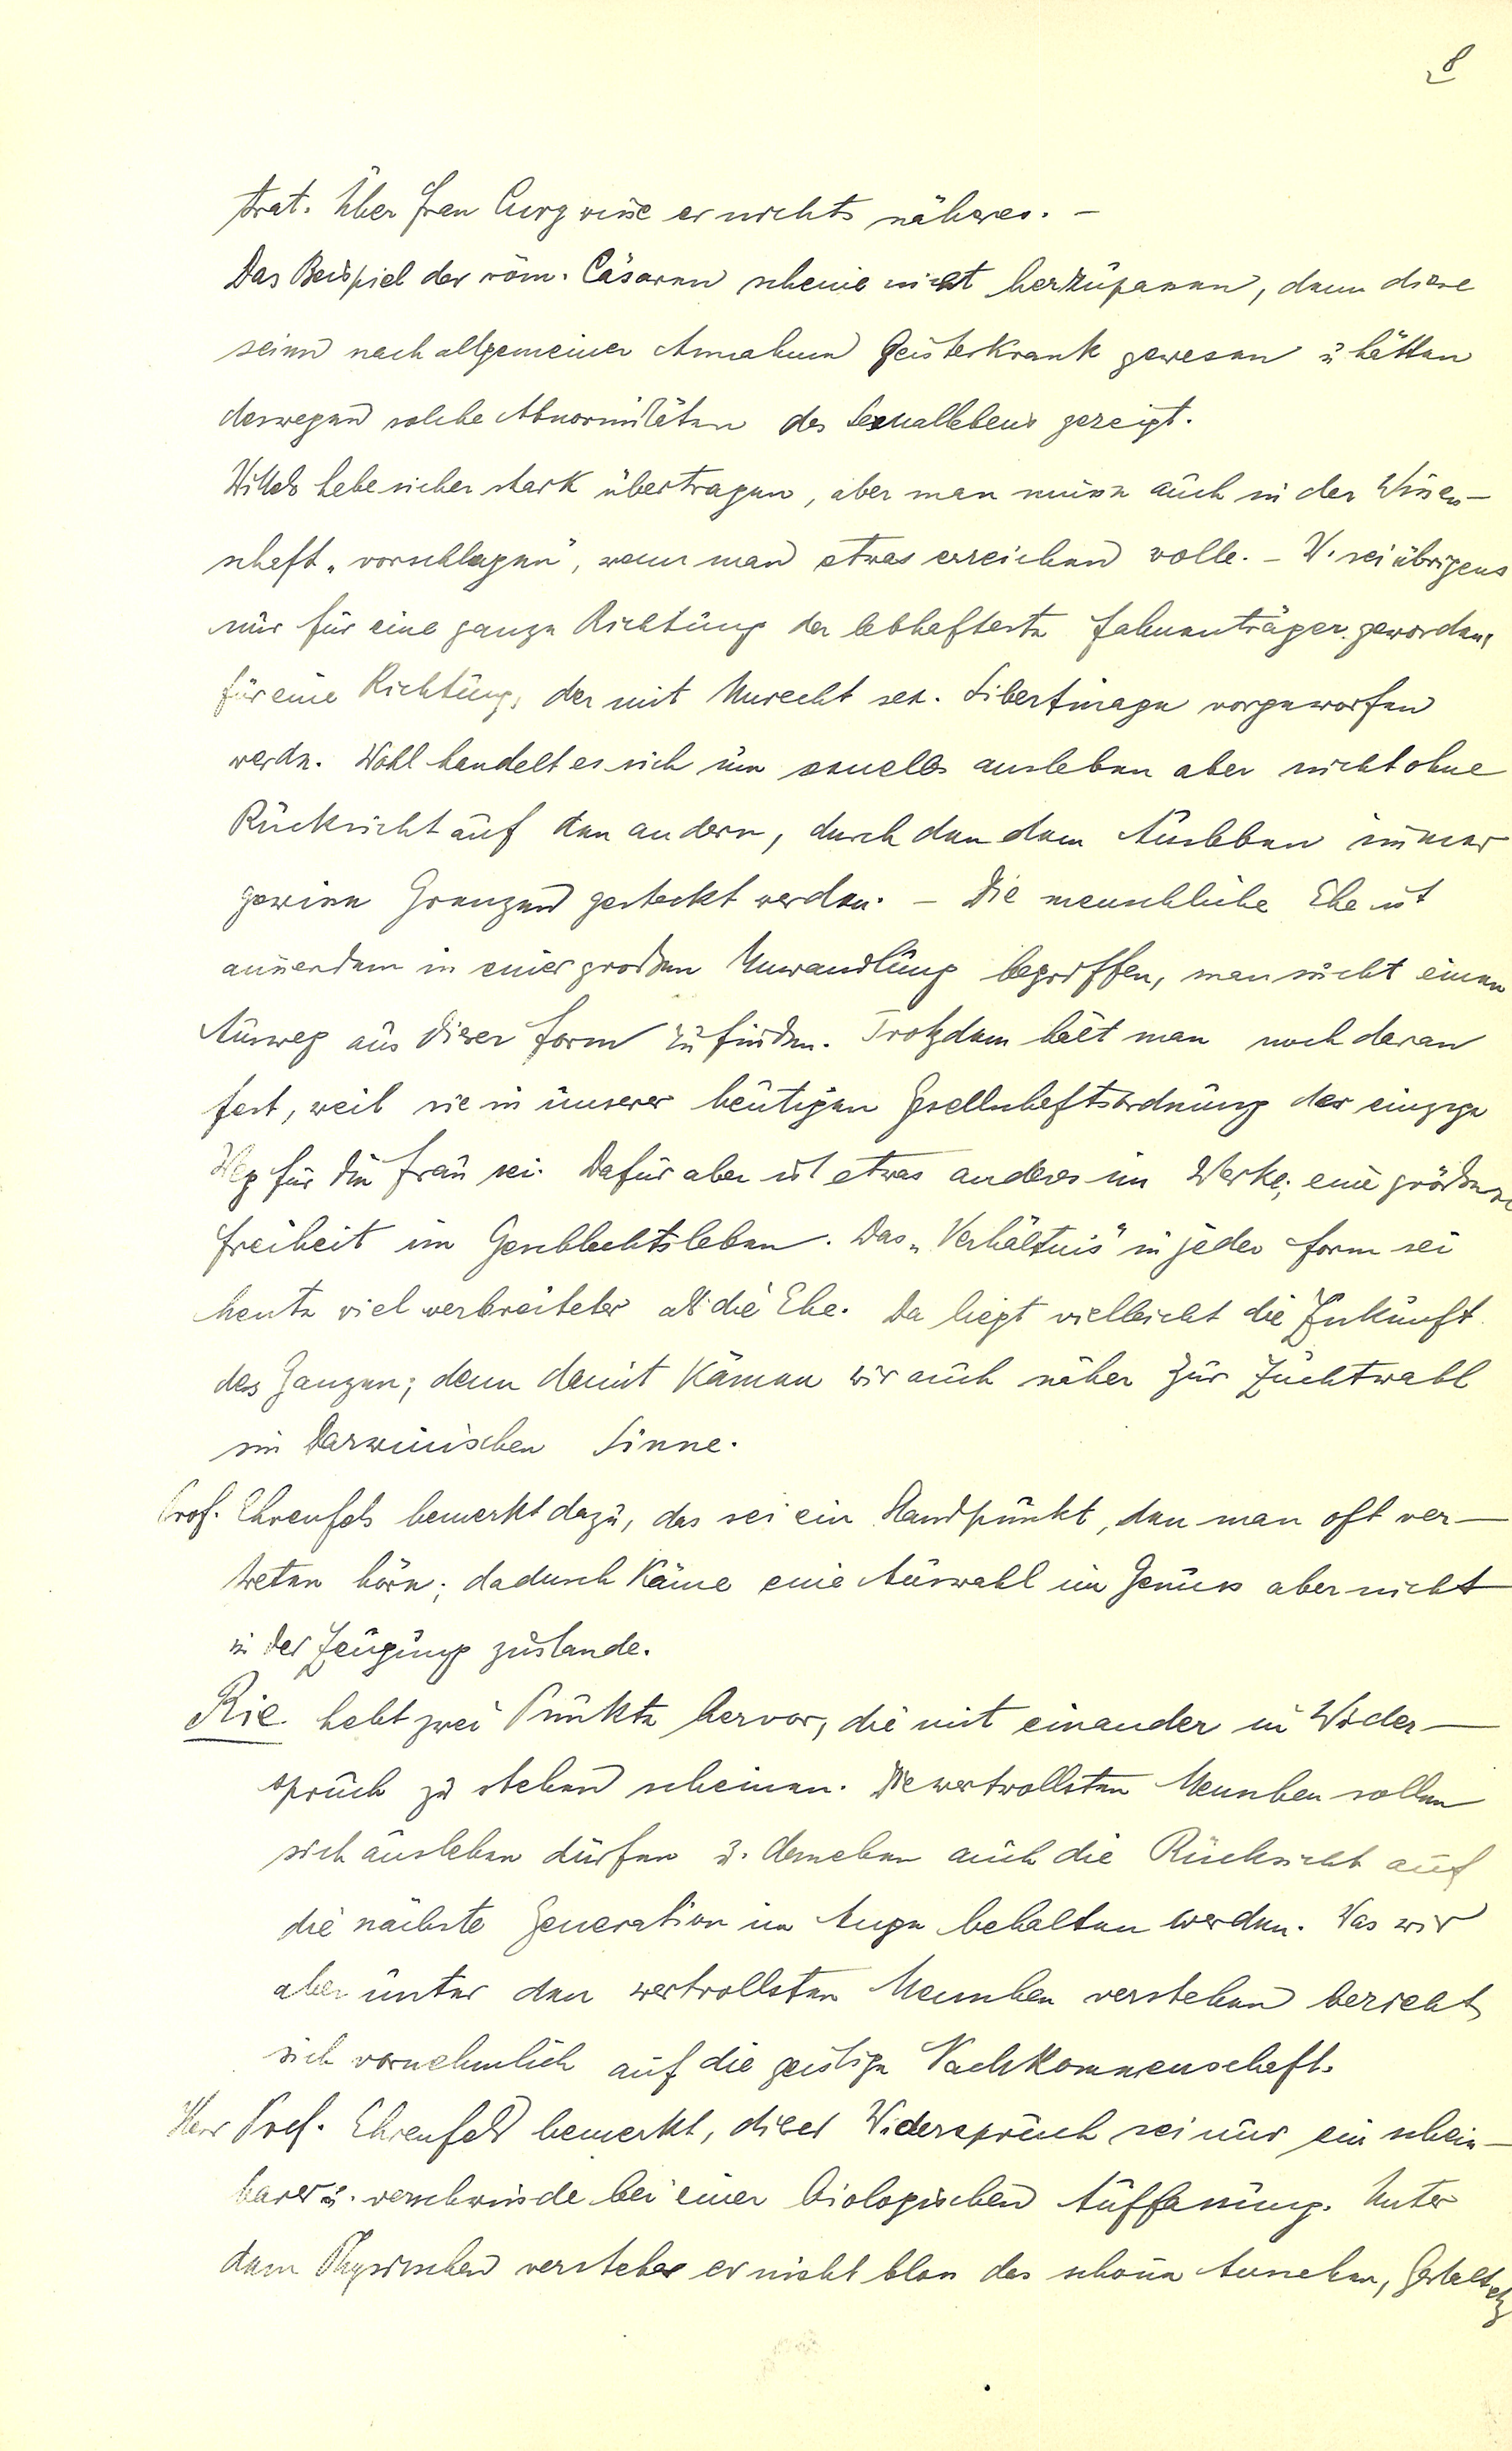 8
trat. Über Frau Curz wisse er nichts näheres. –
Das Beispiel der röm. Cäsaren scheine nicht herzupassen, denn diese
seien nach allgemeiner Annahme geisteskrank gewesen u hätten
deswegen solche Abnormitäten des Sexuallebens gezeigt.
Wittels habe sicher stark übertragen, aber man müsse auch in der Wissen-
schaft „vorschlagen", wenn man etwas erreichen wolle. – W. sei übrigens
nur für eine ganze Richtung der lebhafteste Fahnenträger geworden,
für eine Richtung, der mit Unrecht sex. Libertinage vorgeworfen
werde. Wohl handelt es sich um sexuelles ausleben aber nicht ohne
Rücksicht auf den andern, durch den dem Ausleben immer
gewisse Grenzen gesteckt werden. – Die menschliche Ehe ist
ausserdem in einer großen Umwandlung begriffen, man sucht einen
Ausweg aus dieser Form zu finden. Trotzdem hält man noch daran
fest, weil sie in unserer heutigen Gesellschaftsordnung der einzige
Weg für die Frau sei. Dafür aber ist etwas anderes im Werke; eine größere
Freiheit im Geschlechtsleben. Das „Verhältnis" in jeder Form sei
heute viel verbreiteter als die Ehe. Da liegt vielleicht die Zukunft
des Ganzen; denn damit kämen wir auch näher zur Zuchtwahl
im Darwinischen Sinne.
Prof. Ehrenfels bemerkt dazu, das sei ein Standpunkt, den man oft ver-
treten höre; dadurch käme eine Auswahl im Genuss aber nicht
in der Zeugung zustande.
Rie hebt zwei Punkte hervor, die mit einander in Wider-
spruch zu stehen scheinen. Die wertvollsten Menschen sollen
sich ausleben dürfen u. daneben auch die Rücksicht auf
die nächste Generation im Auge behalten werden. Was wir
aber unter den wertvollsten Menschen verstehen bezieht
sich vornehmlich auf die geistige Nachkommenschaft.
Herr Prof. Ehrenfels bemerkt, dieser Widerspruch sei nur ein schein-
barer u. verschwinde bei einer biologischen Auffassung. Unter
dem Physischen verstehe er nicht blos das schöne Aussehen, Gestalt etz